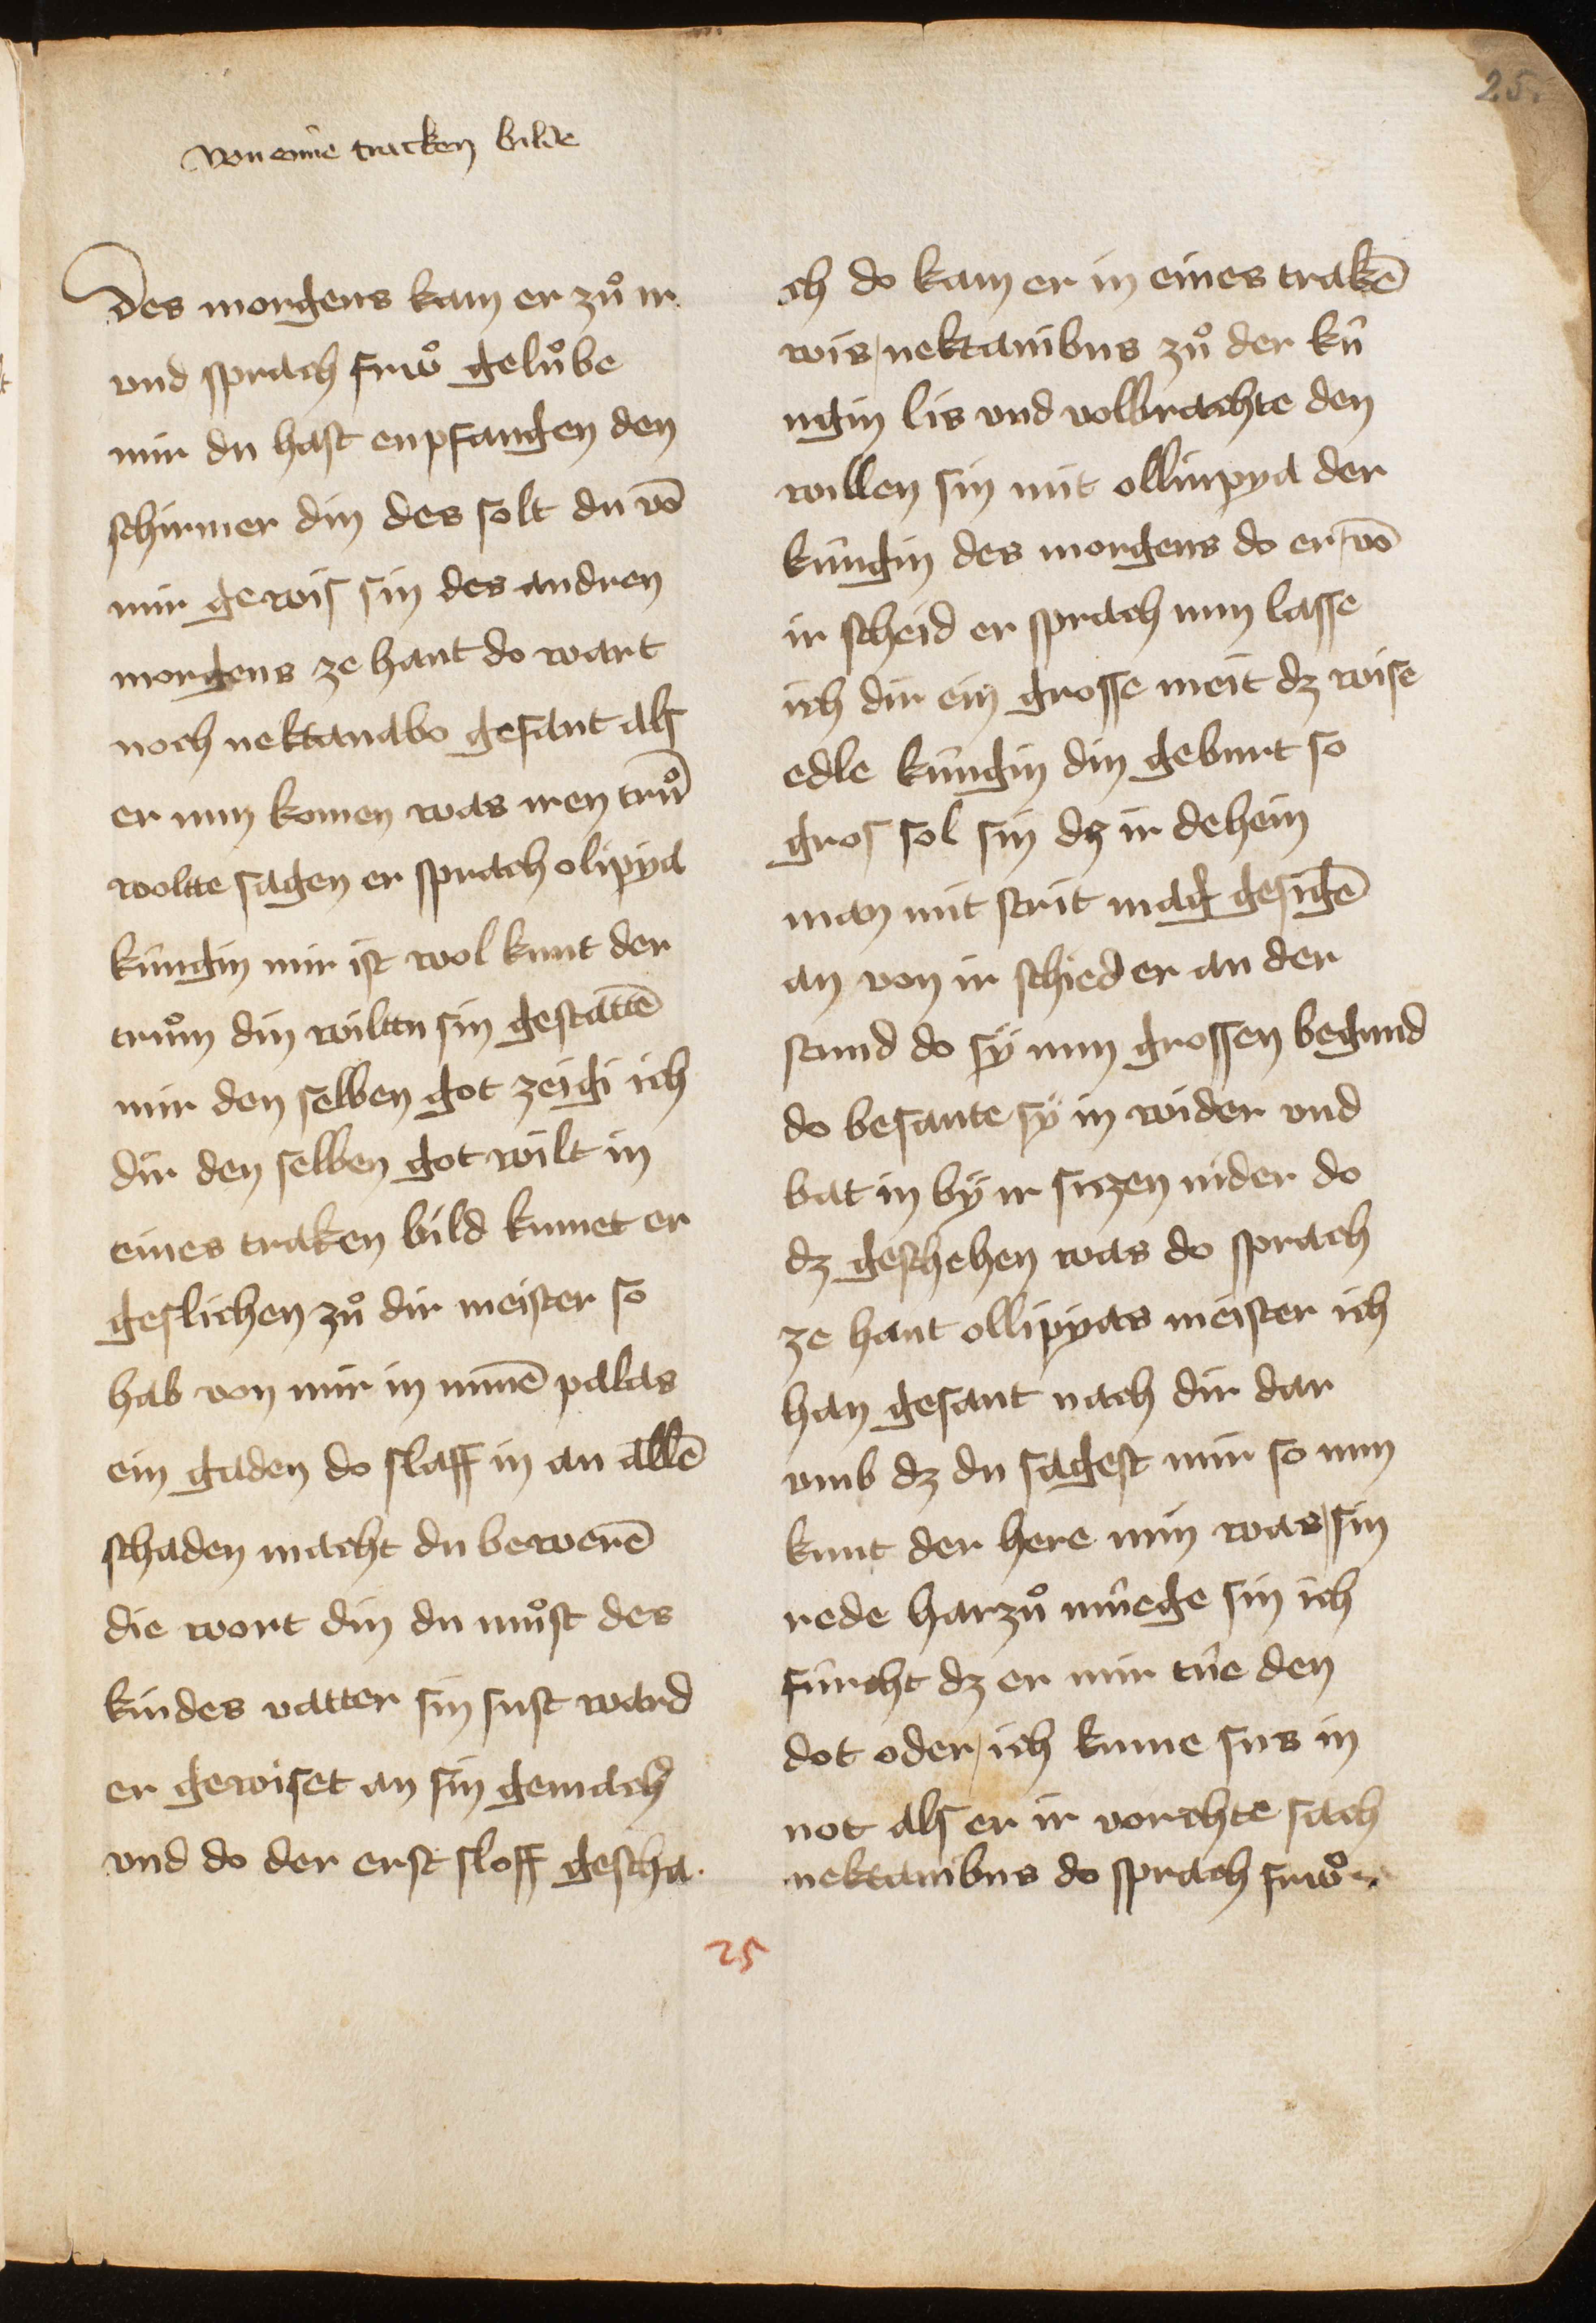 25.
von eime tracken bilde
Des morgens kam er zuͦ ir
vnd sprach frwͦ geluͦbe
mir du hast enpfangen den
schirmer din des solt du vō
mir gewis sin des andren
morgens ze hant do wart
noch nektanabo gesant als
er nun komen was iren truͦ̄
woltte sagen er sprach olipya
kúngin mir ist wol kunt der
truͦm din wilttu sin gestattē
mir den selben got zeigi ich
dir den selben got wilt in
eines traken bild kumet er
geslichen zuͦ dir meister so
hab von mir in minē palas
ein gaden do slaff in an allē
schaden macht du bewerē
die wort din du muͦst des
kindes vatter sin sust ward
er gewiset an sin gemach
vnd do der erst sloff gescha
ch do kam er in eines trakē
wis nektanibus zuͦ der kú
ngin lis vnd volbrachte den
willen sin mit ollinpya der
kúngin des morgens do er vō
ir scheid er sprach nun lasse
ich dir ein grosse meit dz wise
edle kúngin din geburt so
gros sol sin dz ir dehein
man mit strit mag gesigē
an von ir schied er an der
stund do sÿ nun grossen begund
do besante sÿ in wider vnd
bat in bÿ ir sitzen nider do
dz geschehen was do sprach
ze hant ollipyas meister ich
han gesant nach dir dar
vmb dz du sagest mir so nun
kunt der here min was sin
rede harzuͦ múege sin ich
fúrcht dz er mir túe den
dot oder ich kume sus in
not als er ir vorchte sach
nektanibus do sprach frwͦ
25